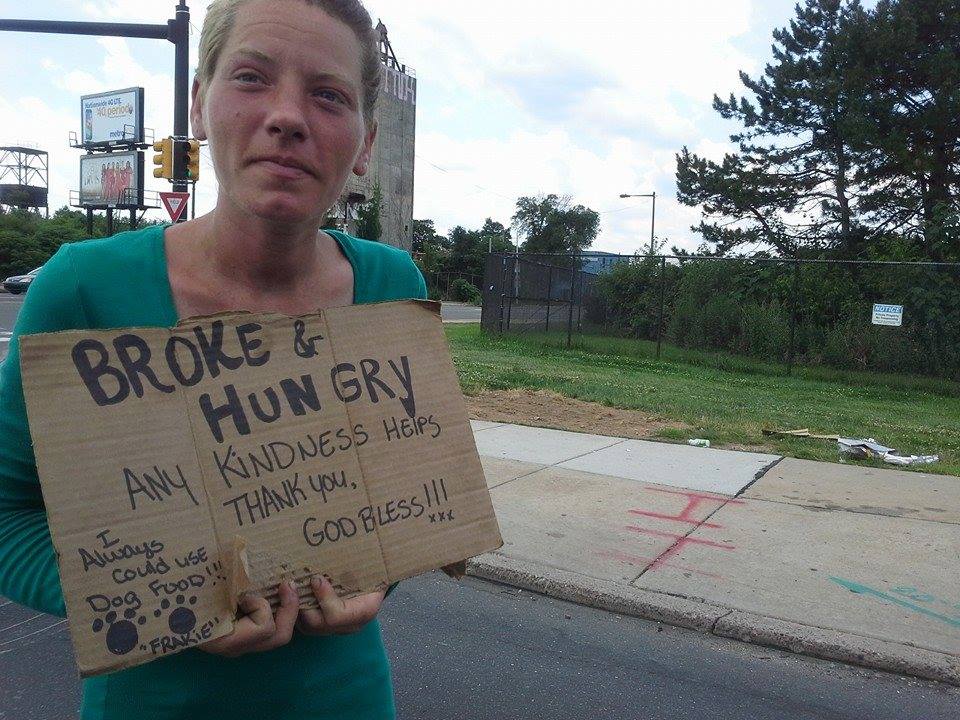 Nationwide 4G LTE
40. period.
metro
BROKE &
HUNGRY
ANY KINDNESS HElPS
THANK YOU,
GOD BLESS!!!
xxx
I
Always
Could USE
Dog FOOD!!!
"FRAKIE"
NOTICE